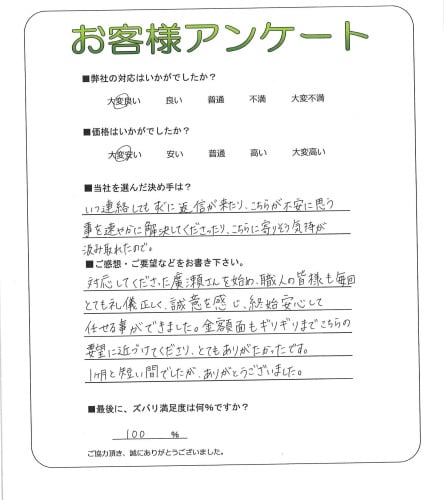 お客様アンケート
■弊社の対応はいかがでしたか？
大変良い 良い 普通 不満 大変不満
■価格はいかがでしたか？
大変安い 安い 普通 高い 大変高い
■当社を選んだ決め手は？
いつ連絡しても すぐに返信が来たり、こちらが不安に思う
事を速やかに解決してくださったり、こちらに寄りそう気持が
汲み取れたので。
■ご感想・ご要望などをお書き下さい。
対応してくださった廣瀬さんを始め、職人の皆様も毎回
とても礼儀正しく、誠意を感じ、終始安心して
任せる事ができました。金額面もギリギリまでこちらの
要望に近づけてくださり、とてもありがたかったです。
1ヶ月と短い間でしたが、ありがとうございました。
■最後に、ズバリ満足度は何％ですか？
100 ％
ご協力頂き、誠にありがとうございました。